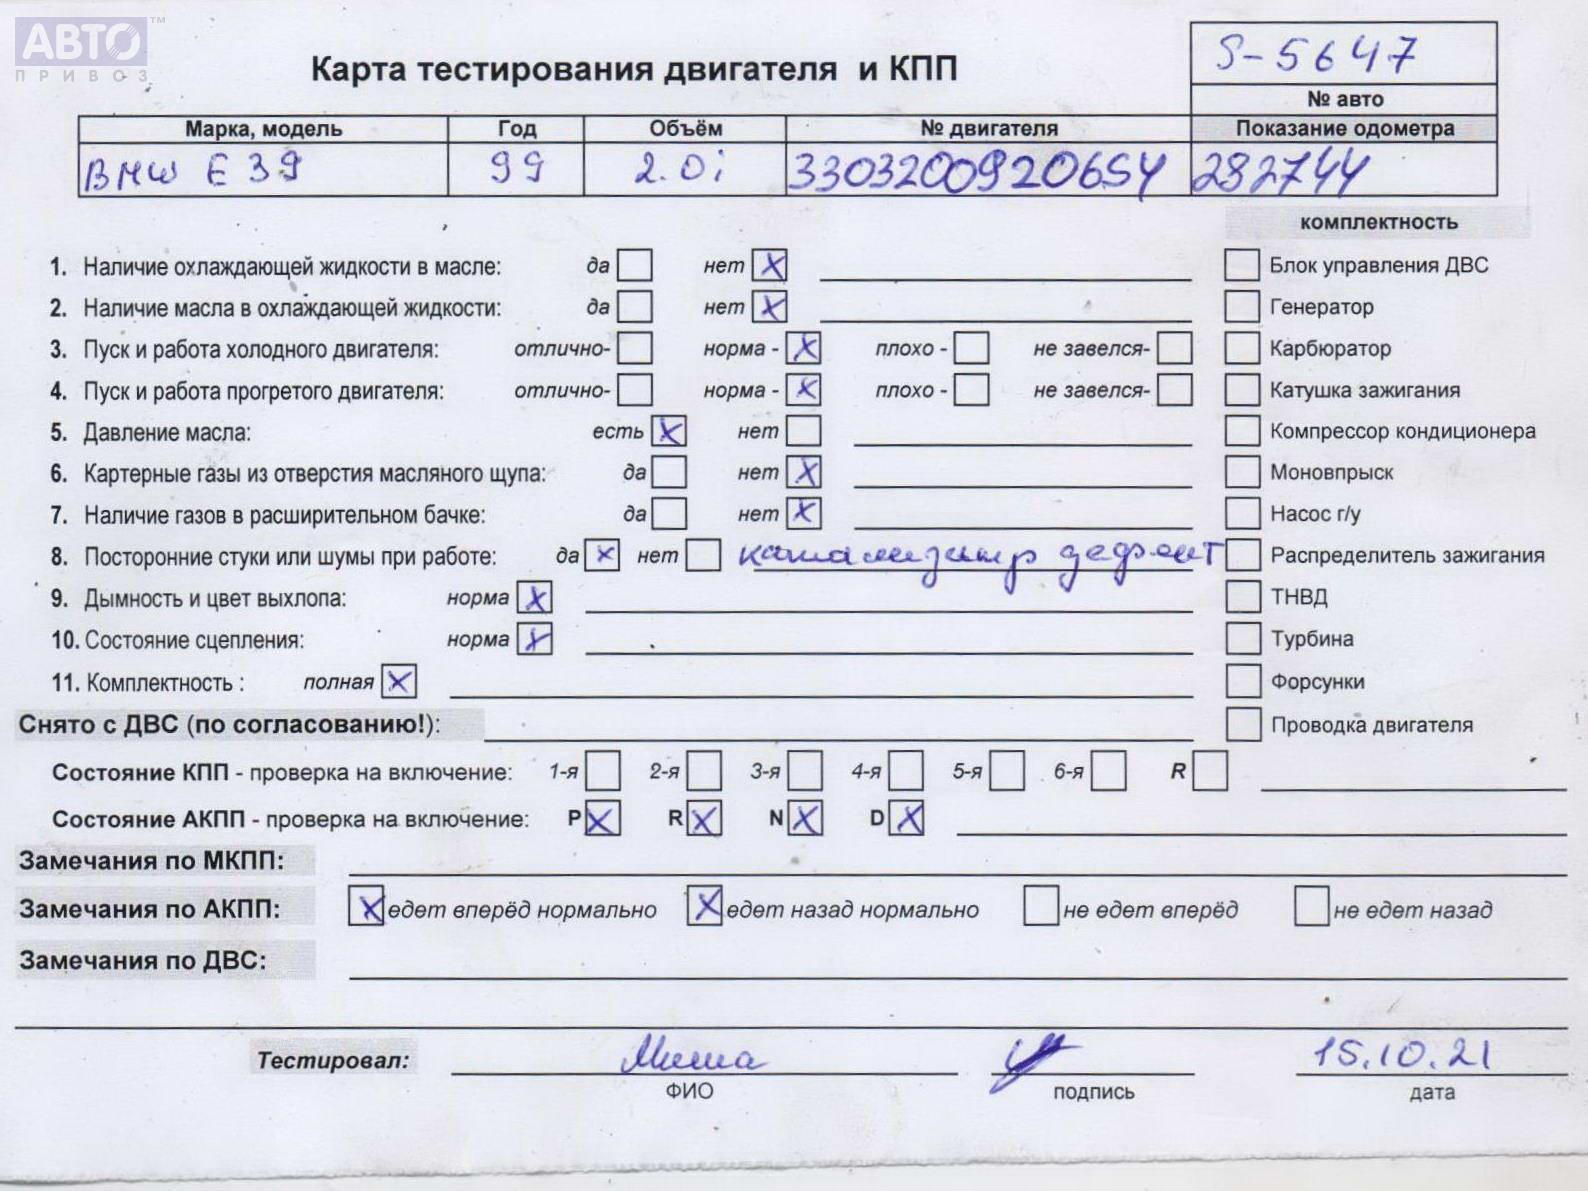 АВТО™
ПРИВОЗ
Карта тестирования двигателя и КПП
S-5647
№ авто
Марка, модель Год Объём № двигателя Показание одометра
BMW E 39 99 2.0i 33032009206S4 282744
комплектность
1. Наличие охлаждающей жидкости в масле: да нет X Блок управления ДВС
2. Наличие масла в охлаждающей жидкости: да нет X Генератор
3. Пуск и работа холодного двигателя: отлично- норма - X плохо - не завелся- Карбюратор
4. Пуск и работа прогретого двигателя: отлично- норма - X плохо - не завелся- Катушка зажигания
5. Давление масла: есть X нет Компрессор кондиционера
6. Картерные газы из отверстия масляного щупа: да нет X Моновпрыск
7. Наличие газов в расширительном бачке: да нет X Насос г/у
8. Посторонние стуки или шумы при работе: да X нет катализатр дефект Распределитель зажигания
9. Дымность и цвет выхлопа: норма X ТНВД
10. Состояние сцепления: норма X Турбина
11. Комплектность : полная X Форсунки
Снято с ДВС (по согласованию!): Проводка двигателя
Состояние КПП - проверка на включение: 1-я 2-я 3-я 4-я 5-я 6-я R
Состояние АКПП - проверка на включение: P X R X N X D X
Замечания по МКПП:
Замечания по АКПП: X едет вперёд нормально X едет назад нормально не едет вперёд не едет назад
Замечания по ДВС:
Тестировал: Миша 15.10.21
ФИО подпись дата